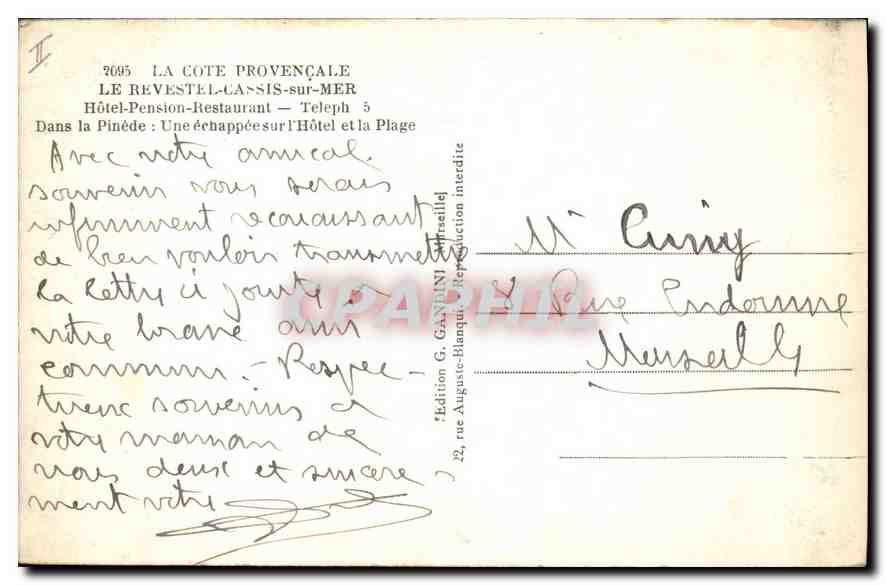 II
2095 LA COTE PROVENÇALE
LE REVESTEL-CASSIS-sur-MER
Hôtel-Pension-Restaurant — Teleph 5
Dans la Pinède : Une échappée sur l'Hôtel et la Plage
Avec notre amical
souvenir vous serais
infiniment reconaissant
de bien vouloir transmettre
la lettre ci jointe à
notre brave ami
commun. - Respec-
tueux souvenirs à
votre maman de
nous deux et sincère-
ment votre
Edition G. GANDINI Marseille
22, rue Auguste-Blanqui Reproduction interdite
CPAPHIL
Mr Cuny
8 Rue Endoume
Marseille